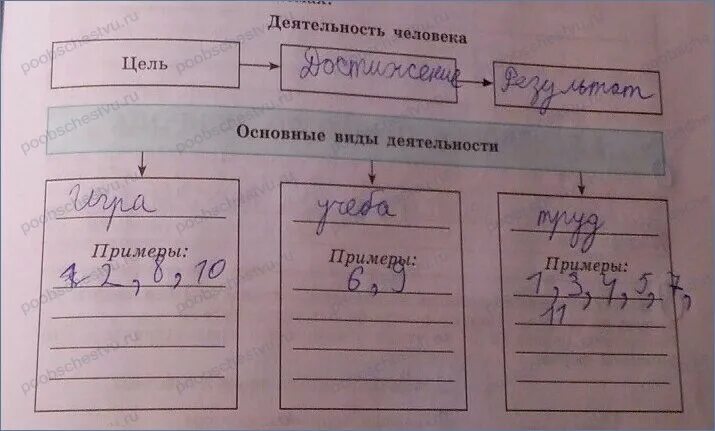 Деятельность человека
Цель
Достижение
Результат
Основные виды деятельности
Игра
Примеры:
2, 8, 10
учеба
Примеры:
6, 9
труд
Примеры:
1, 3, 4, 5, 7,
11
poobschestvu.ru